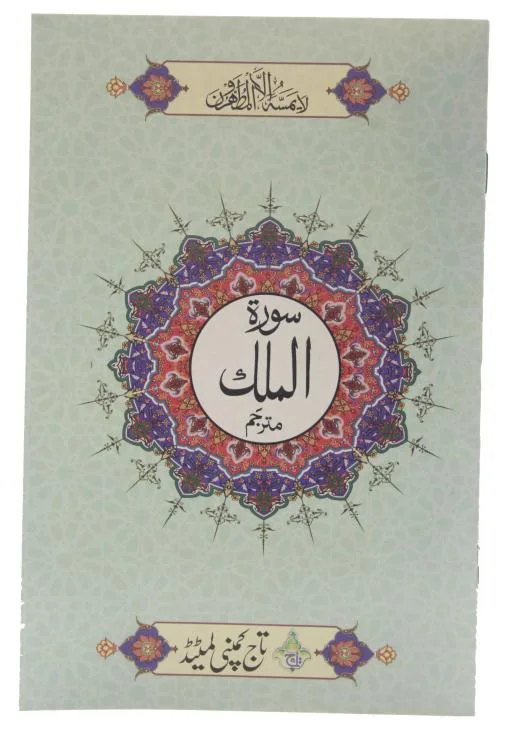 لا يمسه إلا المطهرون
سورة
الملك
مترجم
تاج کمپنی لمیٹڈ
تاج